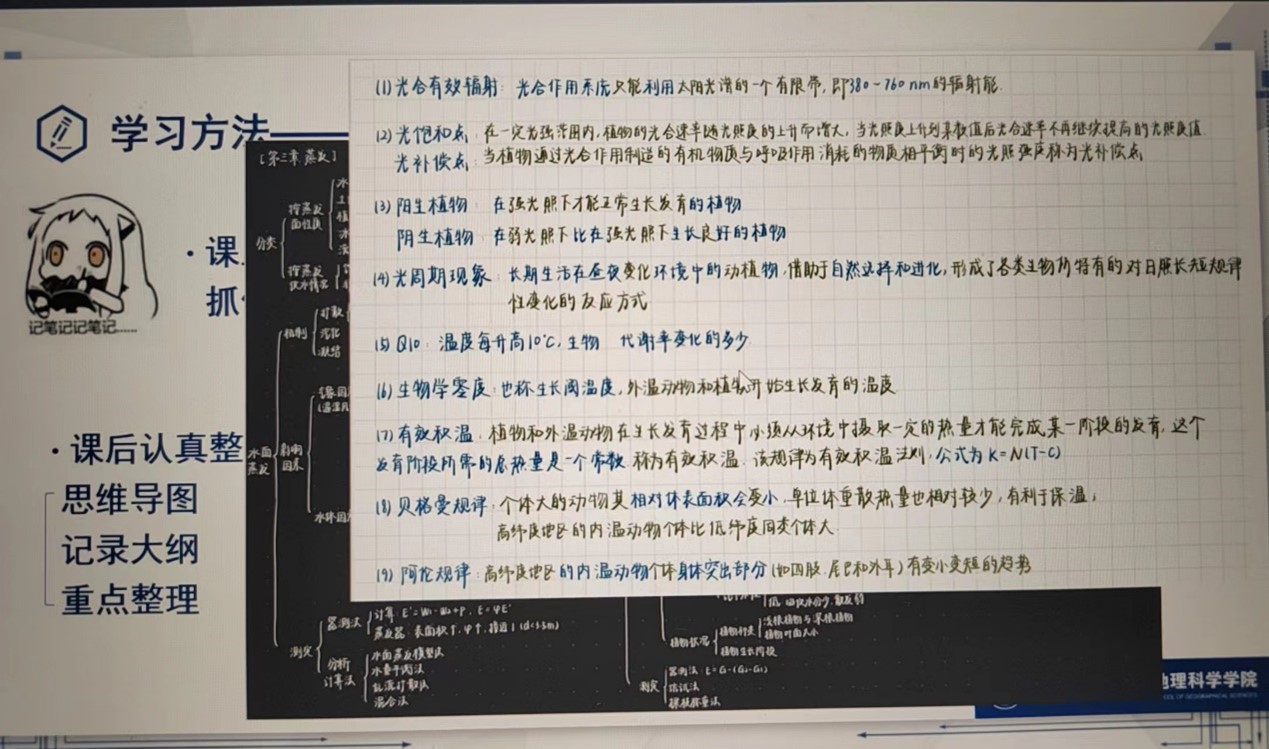 学习方法
记笔记记笔记......
· 课
抓
· 课后认真整
思维导图
记录大纲
重点整理
(1) 光合有效辐射: 光合作用系统只能利用太阳光谱的一个有限带, 即380~760 nm的辐射能.
(2) 光饱和点: 在一定光强范围内, 植物的光合速率随光照度的上升而增大, 当光照度上升到某数值后光合速率不再继续提高的光照度值.
光补偿点: 当植物通过光合作用制造的有机物质与呼吸作用消耗的物质相平衡时的光照强度称为光补偿点
(3) 阳生植物: 在强光照下才能正常生长发育的植物
阴生植物: 在弱光照下比在强光照下生长良好的植物
(4) 光周期现象: 长期生活在昼夜变化环境中的动植物, 借助于自然选择和进化, 形成了各类生物所特有的对日照长短规律
性变化的反应方式
(5) Q10: 温度每升高10℃, 生物 代谢率变化的多少
(6) 生物学零度: 也称生长阈温度, 外温动物和植物开始生长发育的温度
(7) 有效积温: 植物和外温动物在生长发育过程中必须从环境中摄取一定的热量才能完成某一阶段的发育, 这个
发育阶段所需的总热量是一个常数, 称为有效积温. 该规律为有效积温法则, 公式为 K=N(T-C)
(8) 贝格曼规律: 个体大的动物其相对体表面积会变小, 单位体重散热量也相对较少, 有利于保温;
高纬度地区的内温动物个体比低纬度同类个体大.
(9) 阿伦规律: 高纬度地区的内温动物个体身体突出部分(如四肢.尾巴和外耳)有变小变短的趋势
[第三章 蒸发]
分类
按蒸发
面性质
按蒸发
供水情况
水面
蒸发
机制
扩散
对流
凝结
影响
因素
气象因
(温湿风
水体因
测定
器测法
计算: E'=W₁-W₂+P, E=ψE'
蒸发器: 表面积↑, ψ↑, 接近1
分析
计算法
水面蒸发模型法
水量平衡法
乱流扩散法
混合法
植物状况
植物种类
深根植物
植物叶面大小
植物生长阶段
测定
器测法: E=G₁-(G₂-G₁)
坑测法
棵枝称重法
地理科学学院
OL OF GEOGRAPHICAL SCIENCES